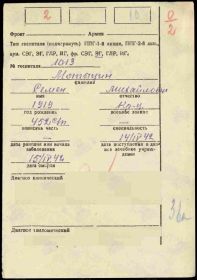 2
0/2
Фронт Армия
Тип госпиталя (подчеркнуть) ППГ-1-й линии, ППГ-2-й лин.
СЭГ, ЭГ, ГЛР, ИГ, фр. СЭГ, ЭГ, ГЛР, ИГ.
№ госпиталя 1013
фамилия
Семен Михайлович
имя отчество
1919
год рождения воинское звание
452 сп.
воинская часть специальность
14/IX 42
дата ранения или начала заболевания дата поступления в данное лечебное учреждение
15/IX 42
дата смерти
Диагноз клинический
Диагноз анатомический